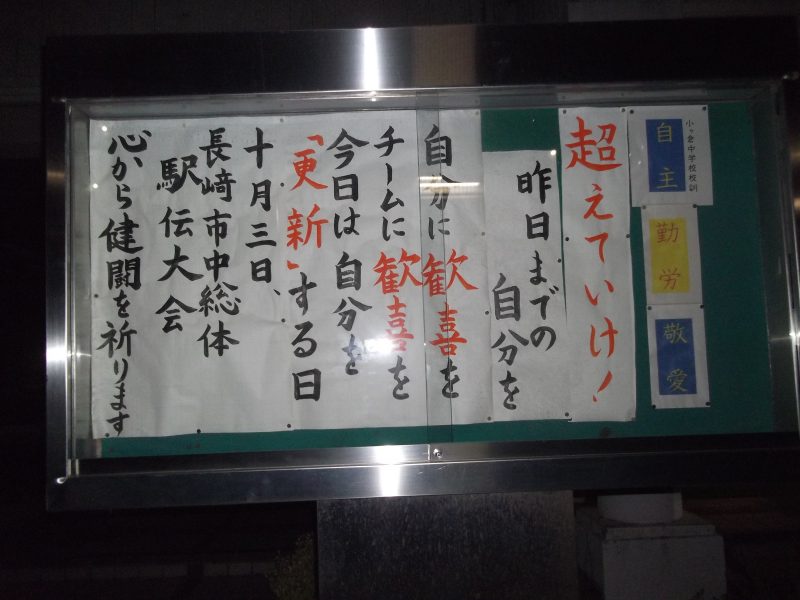 小ヶ倉中学校校訓
自主
勤労
敬愛
超えていけ!
昨日までの
自分を
自分に歓喜を
チームに歓喜を
今日は自分を
「更新」する日
十月三日、
長崎市中総体
駅伝大会
心から健闘を祈ります